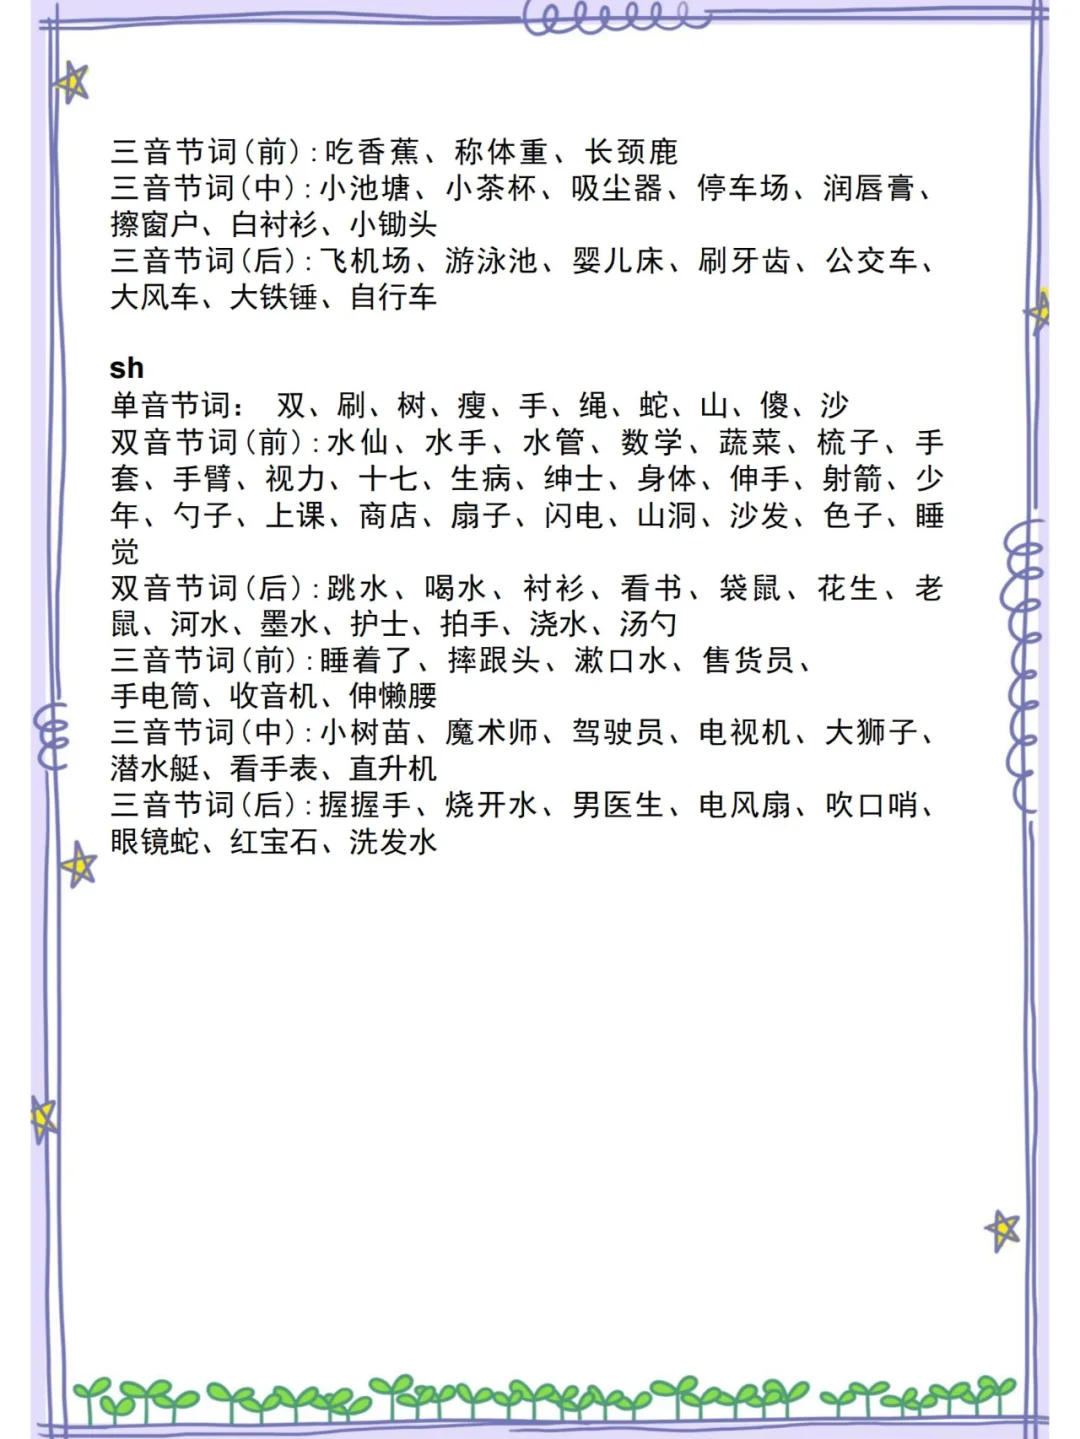 三音节词(前):吃香蕉、称体重、长颈鹿
三音节词(中):小池塘、小茶杯、吸尘器、停车场、润唇膏、
擦窗户、白衬衫、小锄头
三音节词(后):飞机场、游泳池、婴儿床、刷牙齿、公交车、
大风车、大铁锤、自行车
sh
单音节词： 双、刷、树、瘦、手、绳、蛇、山、傻、沙
双音节词(前):水仙、水手、水管、数学、蔬菜、梳子、手
套、手臂、视力、十七、生病、绅士、身体、伸手、射箭、少
年、勺子、上课、商店、扇子、闪电、山洞、沙发、色子、睡
觉
双音节词(后):跳水、喝水、衬衫、看书、袋鼠、花生、老
鼠、河水、墨水、护士、拍手、浇水、汤勺
三音节词(前):睡着了、摔跟头、漱口水、售货员、
手电筒、收音机、伸懒腰
三音节词(中):小树苗、魔术师、驾驶员、电视机、大狮子、
潜水艇、看手表、直升机
三音节词(后):握握手、烧开水、男医生、电风扇、吹口哨、
眼镜蛇、红宝石、洗发水